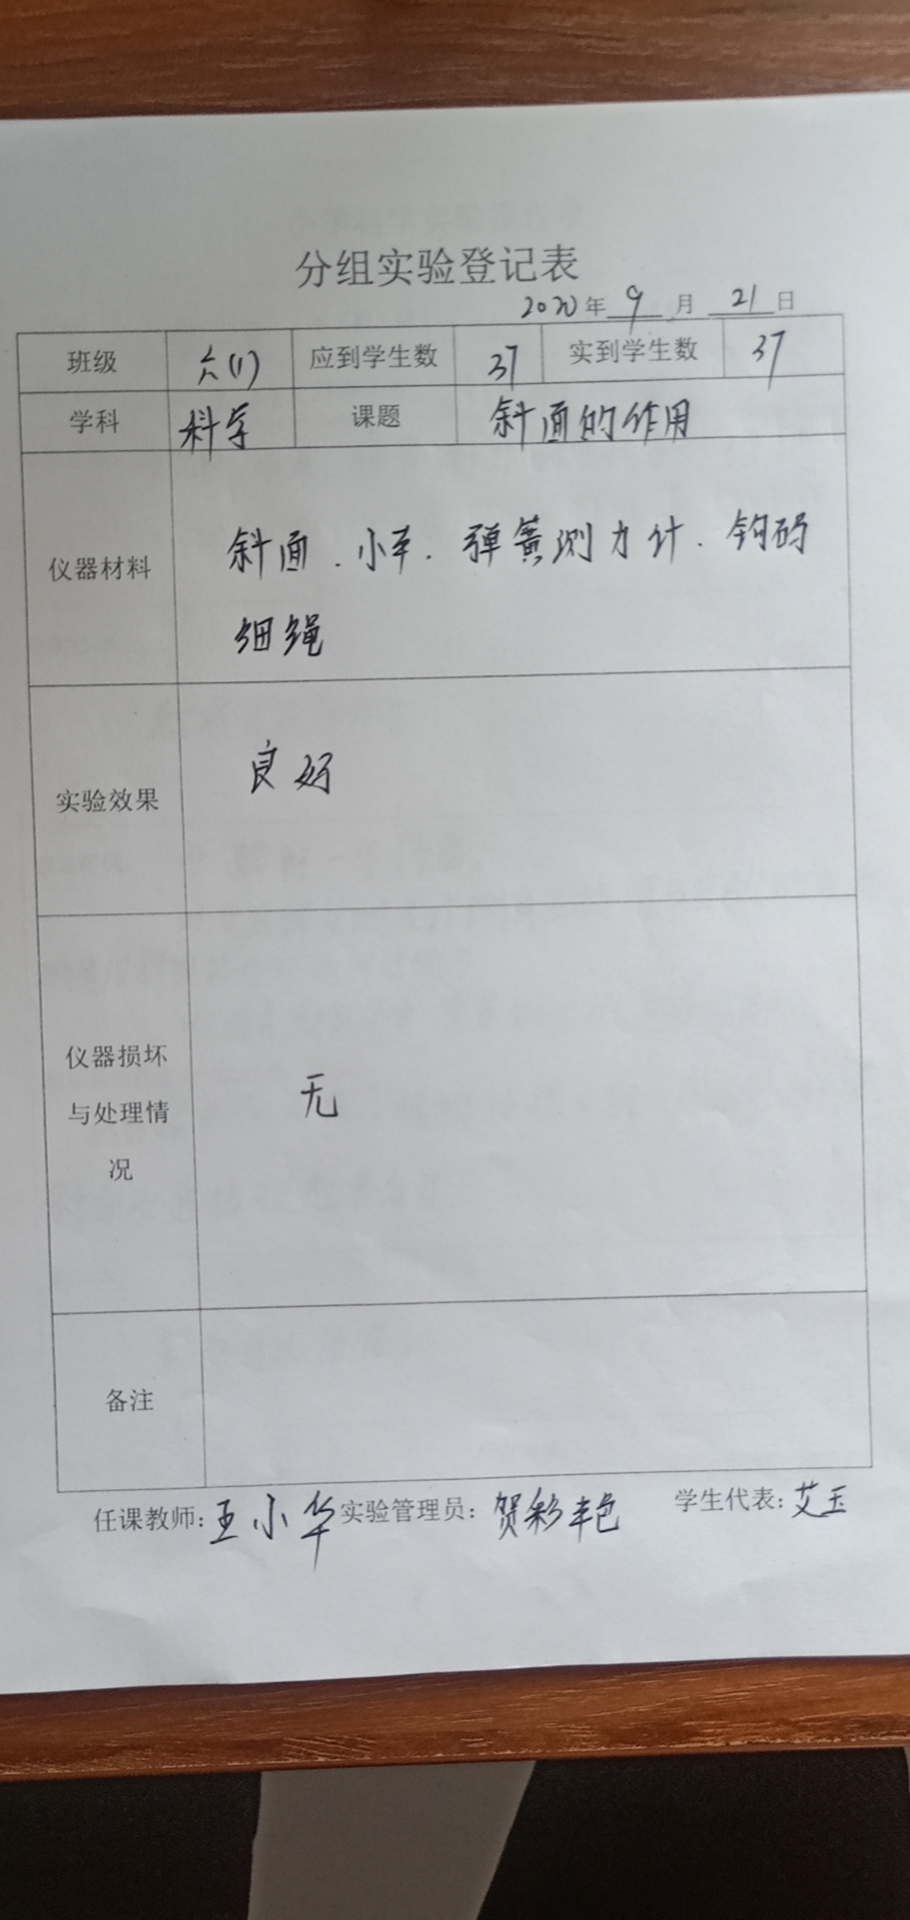 分组实验登记表
2020年 9 月 21 日
班级 六(1) 应到学生数 37 实到学生数 37
学科 科学 课题 斜面的作用
仪器材料 斜面、小车、弹簧测力计、钩码
细绳
实验效果 良好
仪器损坏
与处理情
况
无
备注
任课教师：王小华 实验管理员：贺彩艳 学生代表：艾玉